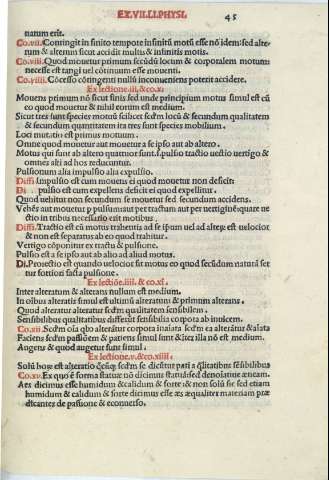 EX.VII.LI.PHYSI. 45
naturam erit.
Co.vii. Contingit in finito tempore infinitū motū esse nō idem: sed alte-
rum & alterum sicut accidit multis & infinitis motis.
Co.viii. Quod mouetur primum secūdū locum & corporalem motum
necesse est tangi uel cōtinuum esse mouenti.
Co.viiii. Cōcesso cōtingenti nullū inconueniens poterit accidere.
Ex lectione.iii. & co.x.
Mouens primum nō sicut finis sed unde principium motus simul est cū
eo quod mouetur & nihil eorum est medium.
Sicut tres sunt species motū scilicet secdm locū & secundum qualitatem
& secundum quantitatem ita tres sunt species mobilium.
Loci mutatio est primus motuum.
Omne quod mouetur aut mouetur a se ipso aut ab altero.
Motus qui sunt ab altero quattuor sunt.s. pulsio tractio uectio uertigo &
omnes alii ad hos reducuntur.
Pulsionum alia impulsio alia expulsio.
Diffi. Impulsio est cum mouens ei quod mouetur non deficit:
Di. pulsio est cum expellens deficit ei quod expellitur.
Quod uehitur non secundum se mouetur sed secundum accidens.
Vehēs aut mouetur p pulsum aut per tractum aut per uertiginē quare ue
ctio in tribus necessario erit motibus.
Diffi. Tractio est cū motus trahentis ad se ipsum uel ad alterȝ est uelocior
& non est separatus ab eo quod trahitur.
Vertigo cōponitur ex tractu & pulsione.
Pulsio est a se ipso aut ab alio ad aliud motus.
Di. Proiectio est quando uelocior fit motus eo quod secūdum natura fer
tur fortiori facta pulsione.
Ex lectiōe.iiii. & co.xi.
Inter alteratum & alterans nullum est medium.
In oībus alteratis simul est ultimū alteratum & primum alterans.
Quod alteratur alteratur secdm qualitatem sensibilem.
Sensibilibus qualitatibus differūt sensibilia corpora ab inuicem.
Co.xii. Secdm oīa qbo alterātur corpora inaīata secdm ea alterātur & aīata
Faciens secdm passiōem & patiens simul sunt & ite illa nō est medium.
Augens & quod augetur sunt simul.
Ex lectione.v. & co.xiiii.
Solū hoȝ est alteratio q̄cūqȝ secdm se dicūtur pati a q̄litatibus sēsibilibus
Co.xv. Ex quo ē forma statuæ nō dicimus statuā: sed denoīatiue æneam.
Aes dicimus esse humidum & calidum & forte: & non solū sic sed etiam
humidum & calidum & forte dicimus esse æs æqualiter materiam præ
dicantes de passione & econuerso.